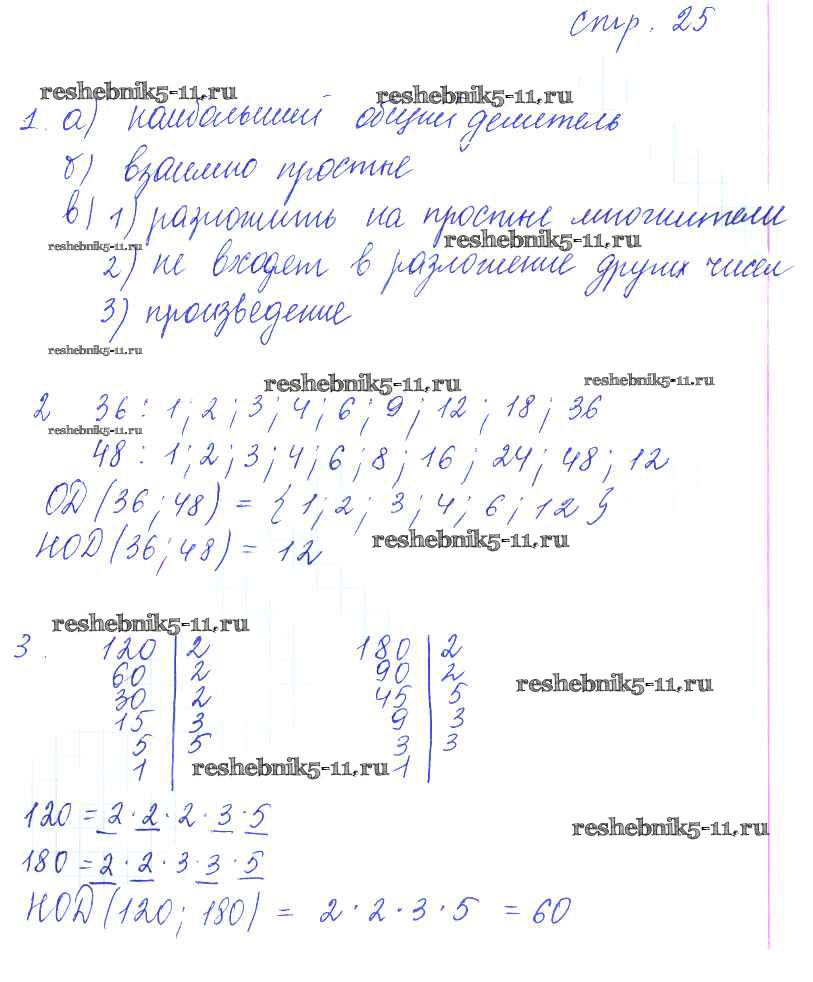 стр. 25
reshebnik5-11.ru reshebnik5-11.ru
1. а) наибольший общий делитель
б) взаимно простые
в) 1) разложить на простые множители
reshebnik5-11.ru reshebnik5-11.ru
2) не входят в разложение других чисел
3) произведение
reshebnik5-11.ru
reshebnik5-11.ru reshebnik5-11.ru
2 36 : 1 ; 2 ; 3 ; 4 ; 6 ; 9 ; 12 ; 18 ; 36
reshebnik5-11.ru
48 : 1 ; 2 ; 3 ; 4 ; 6 ; 8 ; 16 ; 24 ; 48 ; 12
ОД (36 ; 48) = { 1 ; 2 ; 3 ; 4 ; 6 ; 12 }
НОД (36 ; 48) = 12
reshebnik5-11.ru
reshebnik5-11.ru
3. 120 | 2 180 | 2
60 | 2 90 | 2
30 | 2 45 | 5
reshebnik5-11.ru
15 | 3 9 | 3
5 | 5 3 | 3
1 | 1 |
reshebnik5-11.ru
120 = 2 · 2 · 2 · 3 · 5
reshebnik5-11.ru
180 = 2 · 2 · 3 · 3 · 5
НОД (120 ; 180) = 2 · 2 · 3 · 5 = 60